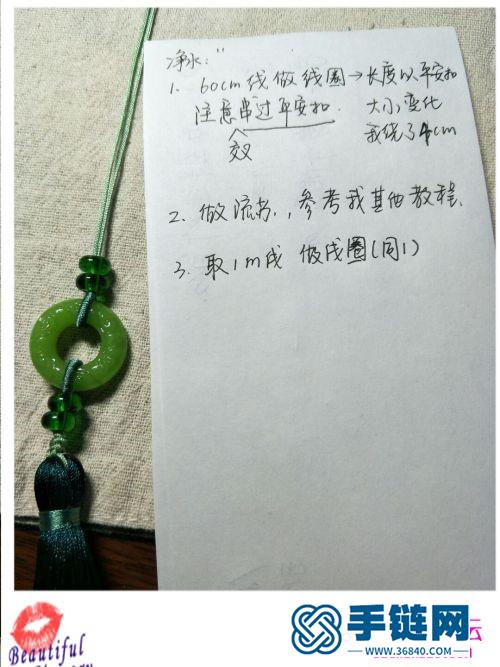 净水:"
1. 60cm线做线圈→长度以平安扣
注意串过平安扣. 大小变化
交叉 我绕了4cm
2. 做流苏,参考我其他教程.
3. 取1m线 做线圈(同1)
手链网
www.36840.com
坛
Beautiful